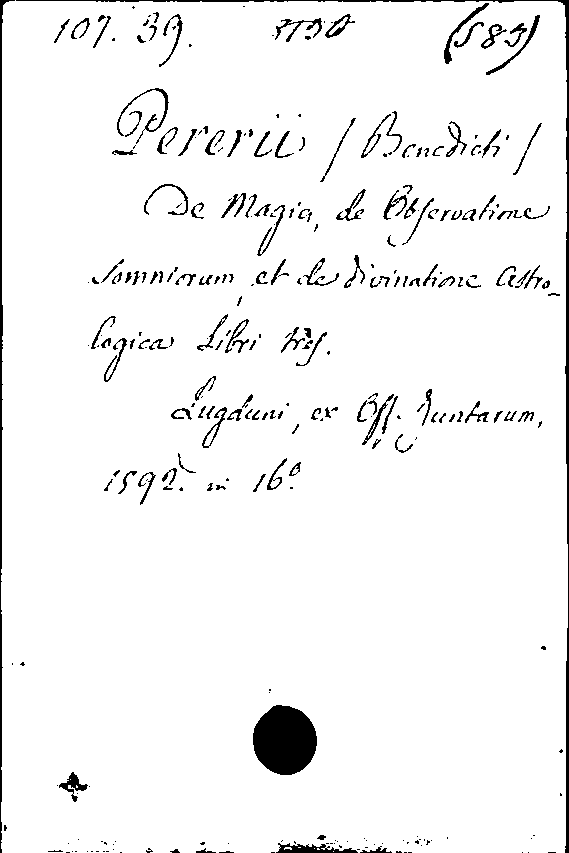 107. 39. (583)
Pererii / Benedicti /
De Magia, de Observatione
somniorum, et de divinatione astro-
logica Libri tres.
Lugduni, ex Off. Juntarum,
1592. in 16°.